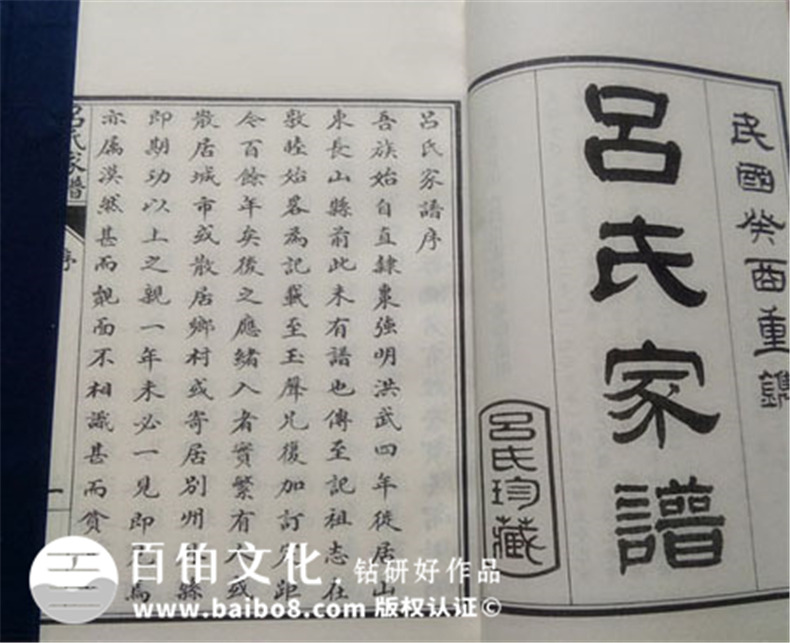 民國癸酉重鐫
呂氏家譜
呂氏珍藏
呂氏家譜序
吾族始自直隸棗強明洪武四年徙居山
東長山縣前此未有譜也傳至記祖志在
敦睦始畧為記載至玉聲兄復加訂定距
今百餘年矣後之應緒入者實繁有人或
散居城市或散居鄉村或寄居別州縣
即期功以上之親一年未必一見即見焉
亦屬漠然甚而覿面不相識甚而貧
呂氏家譜
序
一
百铂文化.钻研好作品
www.baibo8.com 版权认证©